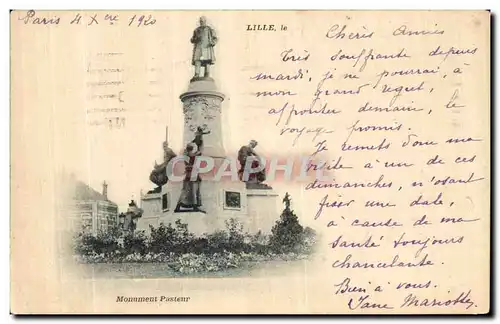 Paris 4 Xbre 1920
LILLE, le
Chères Amies
Très souffrante depuis
mardi, je ne pourrai, à
mon grand regret,
affronter demain, le
voyage promis.
Je remets donc ma
visite à un de ces
dimanches, n'osant
fixer une date,
à cause de ma
santé toujours
chancelante.
Bien à vous.
Jane
CPARAMA
Monument Pasteur